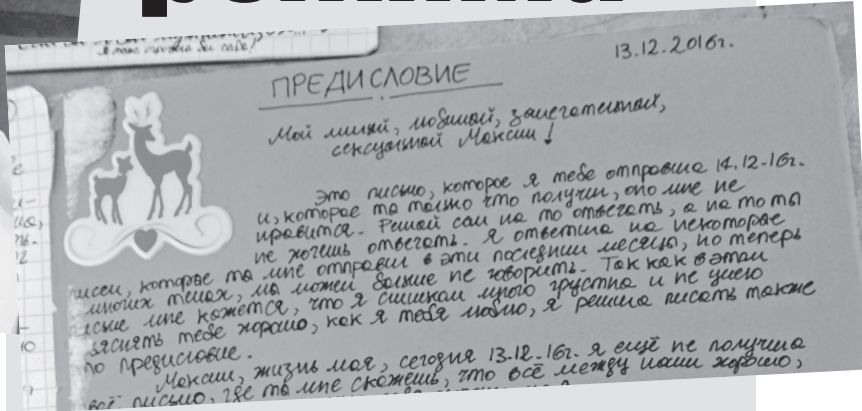 Я тоже
13.12.2016г.
ПРЕДИСЛОВИЕ
Мой милый, любимый, замечательный,
сексуальный Максим!
Это письмо, которое я тебе отправила 14.12.16г.
и, которое ты только что получил, оно мне не
нравится. Решай сам на то отвечать, а на то ты
не хочешь отвечать. Я ответила на некоторые
письма, которые ты мне отправил в эти последнии месяцы, но теперь
многих темах, мы можем больше не говорить. Так как в этом
письме мне кажется, что я слишком много грустна и не умею
яснять тебе хорошо, как я тебя люблю, я решила писать также
по предисловие.
Максим, жизнь моя, сегодня 13.12.16г. я ещё не получила
всё письмо, где ты мне скажешь, что всё между нами хорошо,